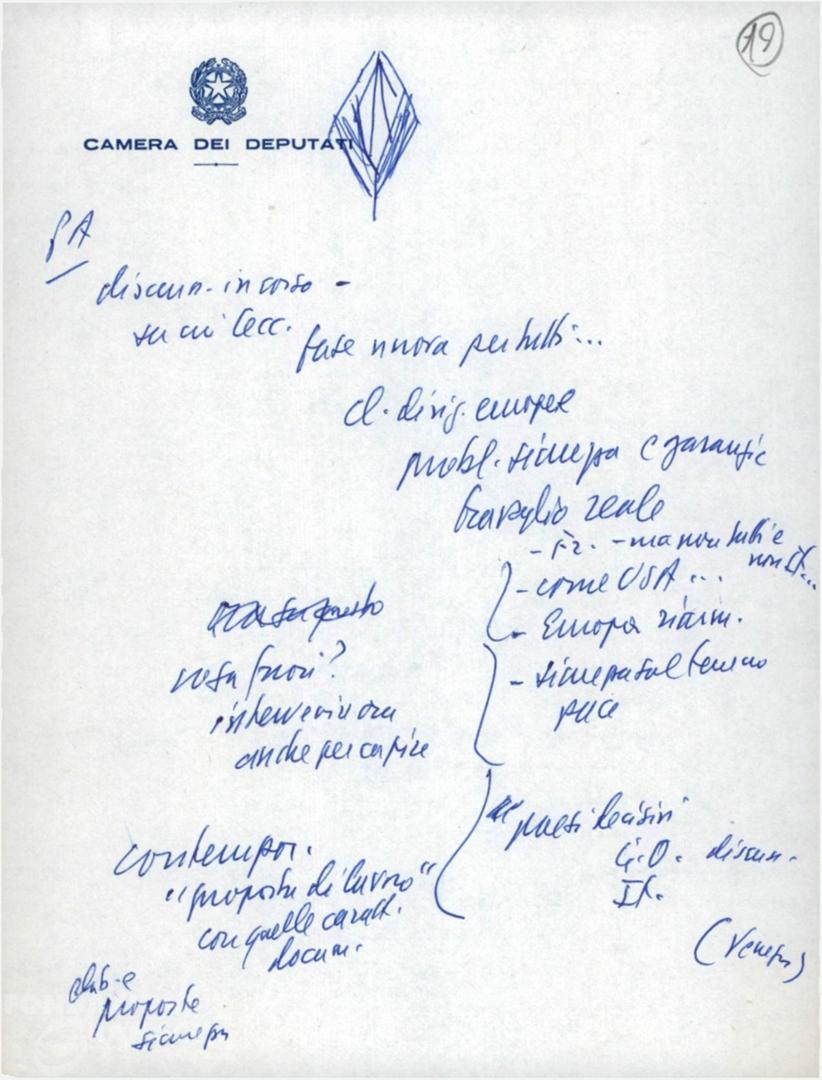 19
CAMERA DEI DEPUTATI
discuss. in corso -
su cui Cecc.
fase nuova per tutti...
cl. dirig. europee
probl. sicurezza e garanzie
travaglio reale
- Fr. - ma non tutti e
non It...
- come USA...
- Europa riarm.
- sicurezza sul terreno
pace
cosa fuori?
intervenire ora
anche per capire
"paesi decisivi
G.O. discuss.
It.
contempor.
"proposta di lavoro"
con quelle caratt.
docum.
(Venezia)
elab. e
proposte
sicurezza